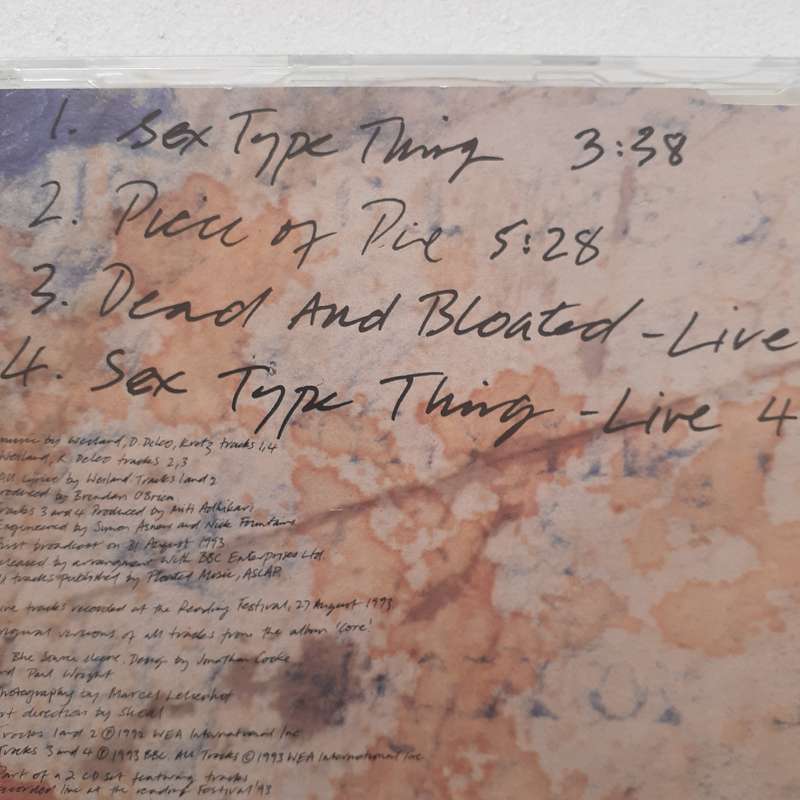 1. Sex Type Thing 3:38
2. Piece of Pie 5:28
3. Dead And Bloated - Live
4. Sex Type Thing - Live 4
music by Weiland, D. DeLeo, Kretz tracks 1,4
Weiland, R. DeLeo tracks 2,3
All Lyrics by Weiland Tracks 1 and 2
Produced by Brendan O'Brien
Tracks 3 and 4 Produced by Miti Adhikari
Engineered by Simon Askew and Nick Fountain
First broadcast on 31 August 1993
Released by arrangment with BBC Enterprises Ltd.
All tracks published by Floated Music, ASCAP.
Live tracks recorded at the Reading Festival, 27 August 1993
original versions of all tracks from the album 'Core'.
Blue Source sleeve. Design by Jonathan Cooke
and Paul Wright
Photography by Marcel
art direction by
Tracks 1 and 2 ℗1992 WEA International Inc
Tracks 3 and 4 ℗1993 BBC. All Tracks ©1993 WEA International Inc
Part of a 2 CD set featuring tracks
recorded live at the reading Festival '93